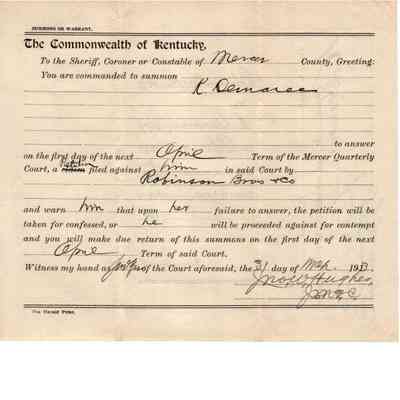 SUMMONS OR WARRANT.
The Commonwealth of Kentucky,
To the Sheriff, Coroner or Constable of Mercer County, Greeting:
You are commanded to summon
R Demaree
to answer
on the first day of the next April Term of the Mercer Quarterly
Petition
Court, a filed against him in said Court by
Robinson Bros & Co
and warn him that upon her failure to answer, the petition will be
taken for confessed, or he will be proceeded against for contempt
and you will make due return of this summons on the first day of the next
April Term of said Court.
Witness my hand as of the Court aforesaid, the 31 day of Mch 1913.
Jno W Hughes
The Herald Print.